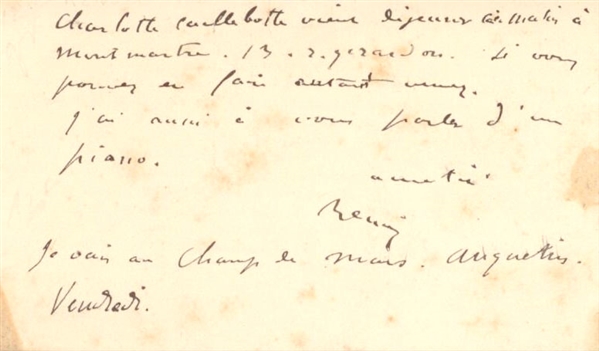 Charlotte Caillebotte vient dejeuner ce matin à
Montmartre. 13. r. girardon. Si vous
pouvez en faire autant venez.
j'ai aussi à vous parler d'un
piano.
amitié
Renoir
Je vais au Champ de mars. Anquetin.
Vendredi.